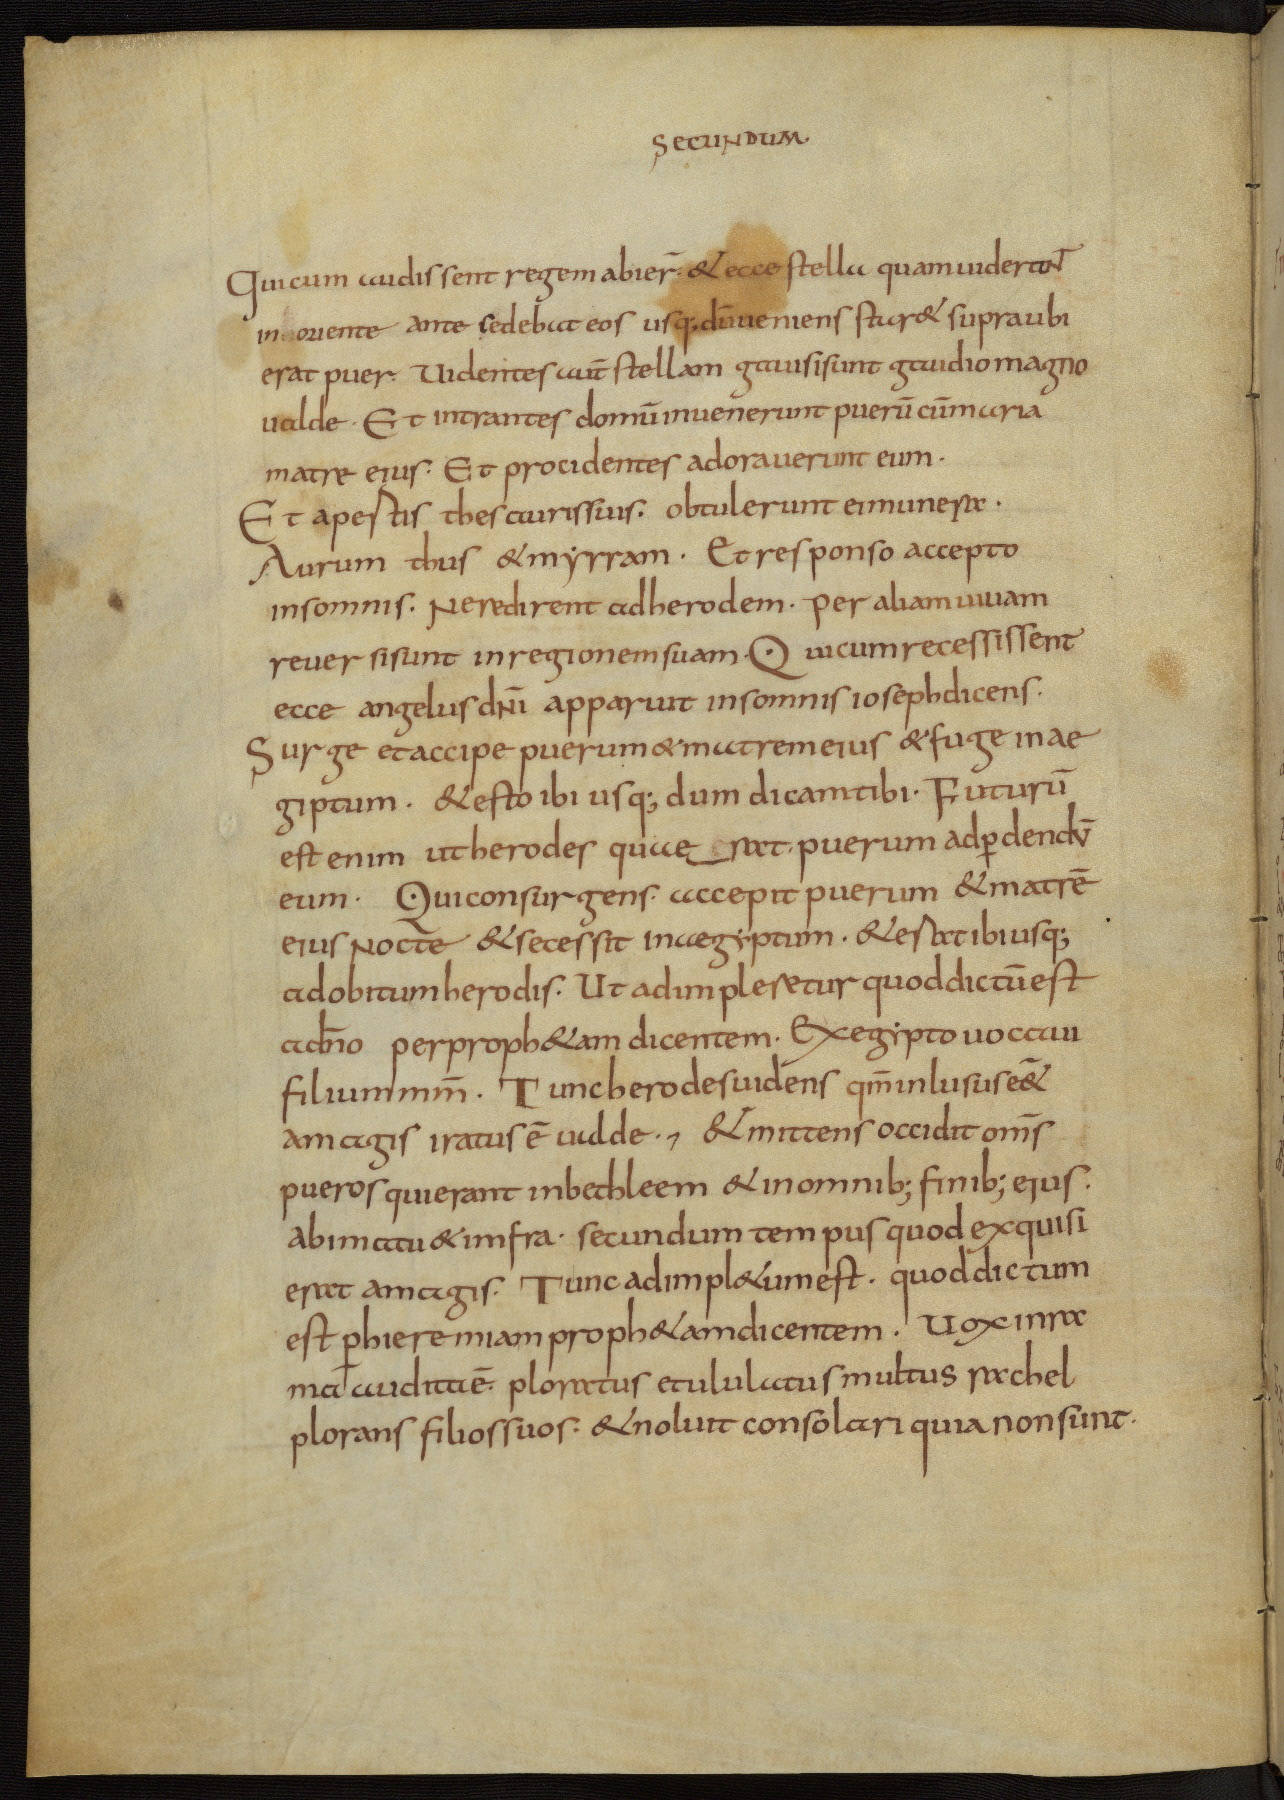 SECUNDUM
Qui cum audissent regem abier̄. & ecce stella quam uiderant
in oriente ante sedebat eos usq; dū ueniens star& supra ubi
erat puer. Uidentes aut̄ stellam gauisi sunt gaudio magno
ualde. Et intrantes domū inuenerunt puerū cū maria
matre eius. Et procidentes adorauerunt eum.
Et apertis thesauris suis. obtulerunt ei munera.
Aurum thus & myrram. Et responso accepto
in somnis. Ne redirent ad herodem. per aliam uiam
reuersi sunt in regionem suam. Qui cum recessissent
ecce angelus dn̄i apparuit in somnis ioseph dicens.
Surge et accipe puerum & matrem eius & fuge in ae
giptum. & esto ibi usq; dum dicam tibi. Futurū
est enim ut herodes quae rat puerum ad ꝑdendū
eum. Qui consurgens. accepit puerum & matrē
eius nocte & secessit in aegyptum. & erat ibi usq;
ad obitum herodis. Ut adimpleretur quod dictū est
a dn̄o per proph&am dicentem. Ex egypto uocaui
filium mm̄. Tunc herodes uidens qm̄ inlusus eēt
a magis iratus ē ualde. & mittens occidit om̄s
pueros qui erant in bethleem & in omnib; finib; eius.
a bimatu & infra. secundum tempus quod exquisi
erat a magis. Tunc adimpl&um est. quod dictum
est ꝑ hieremiam proph&am dicentem. Uox in ra
ma audita ē. ploratus et ululatus multus rachel
plorans filios suos. & noluit consolari quia non sunt.